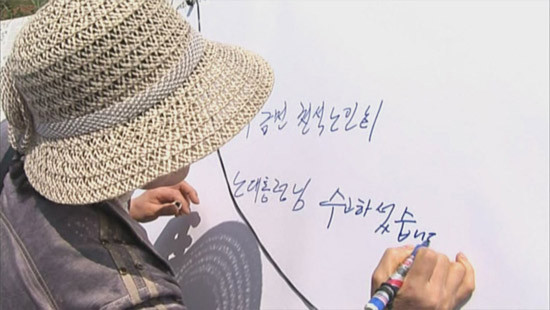 천석노인회
노대통령님 수고하셨습니